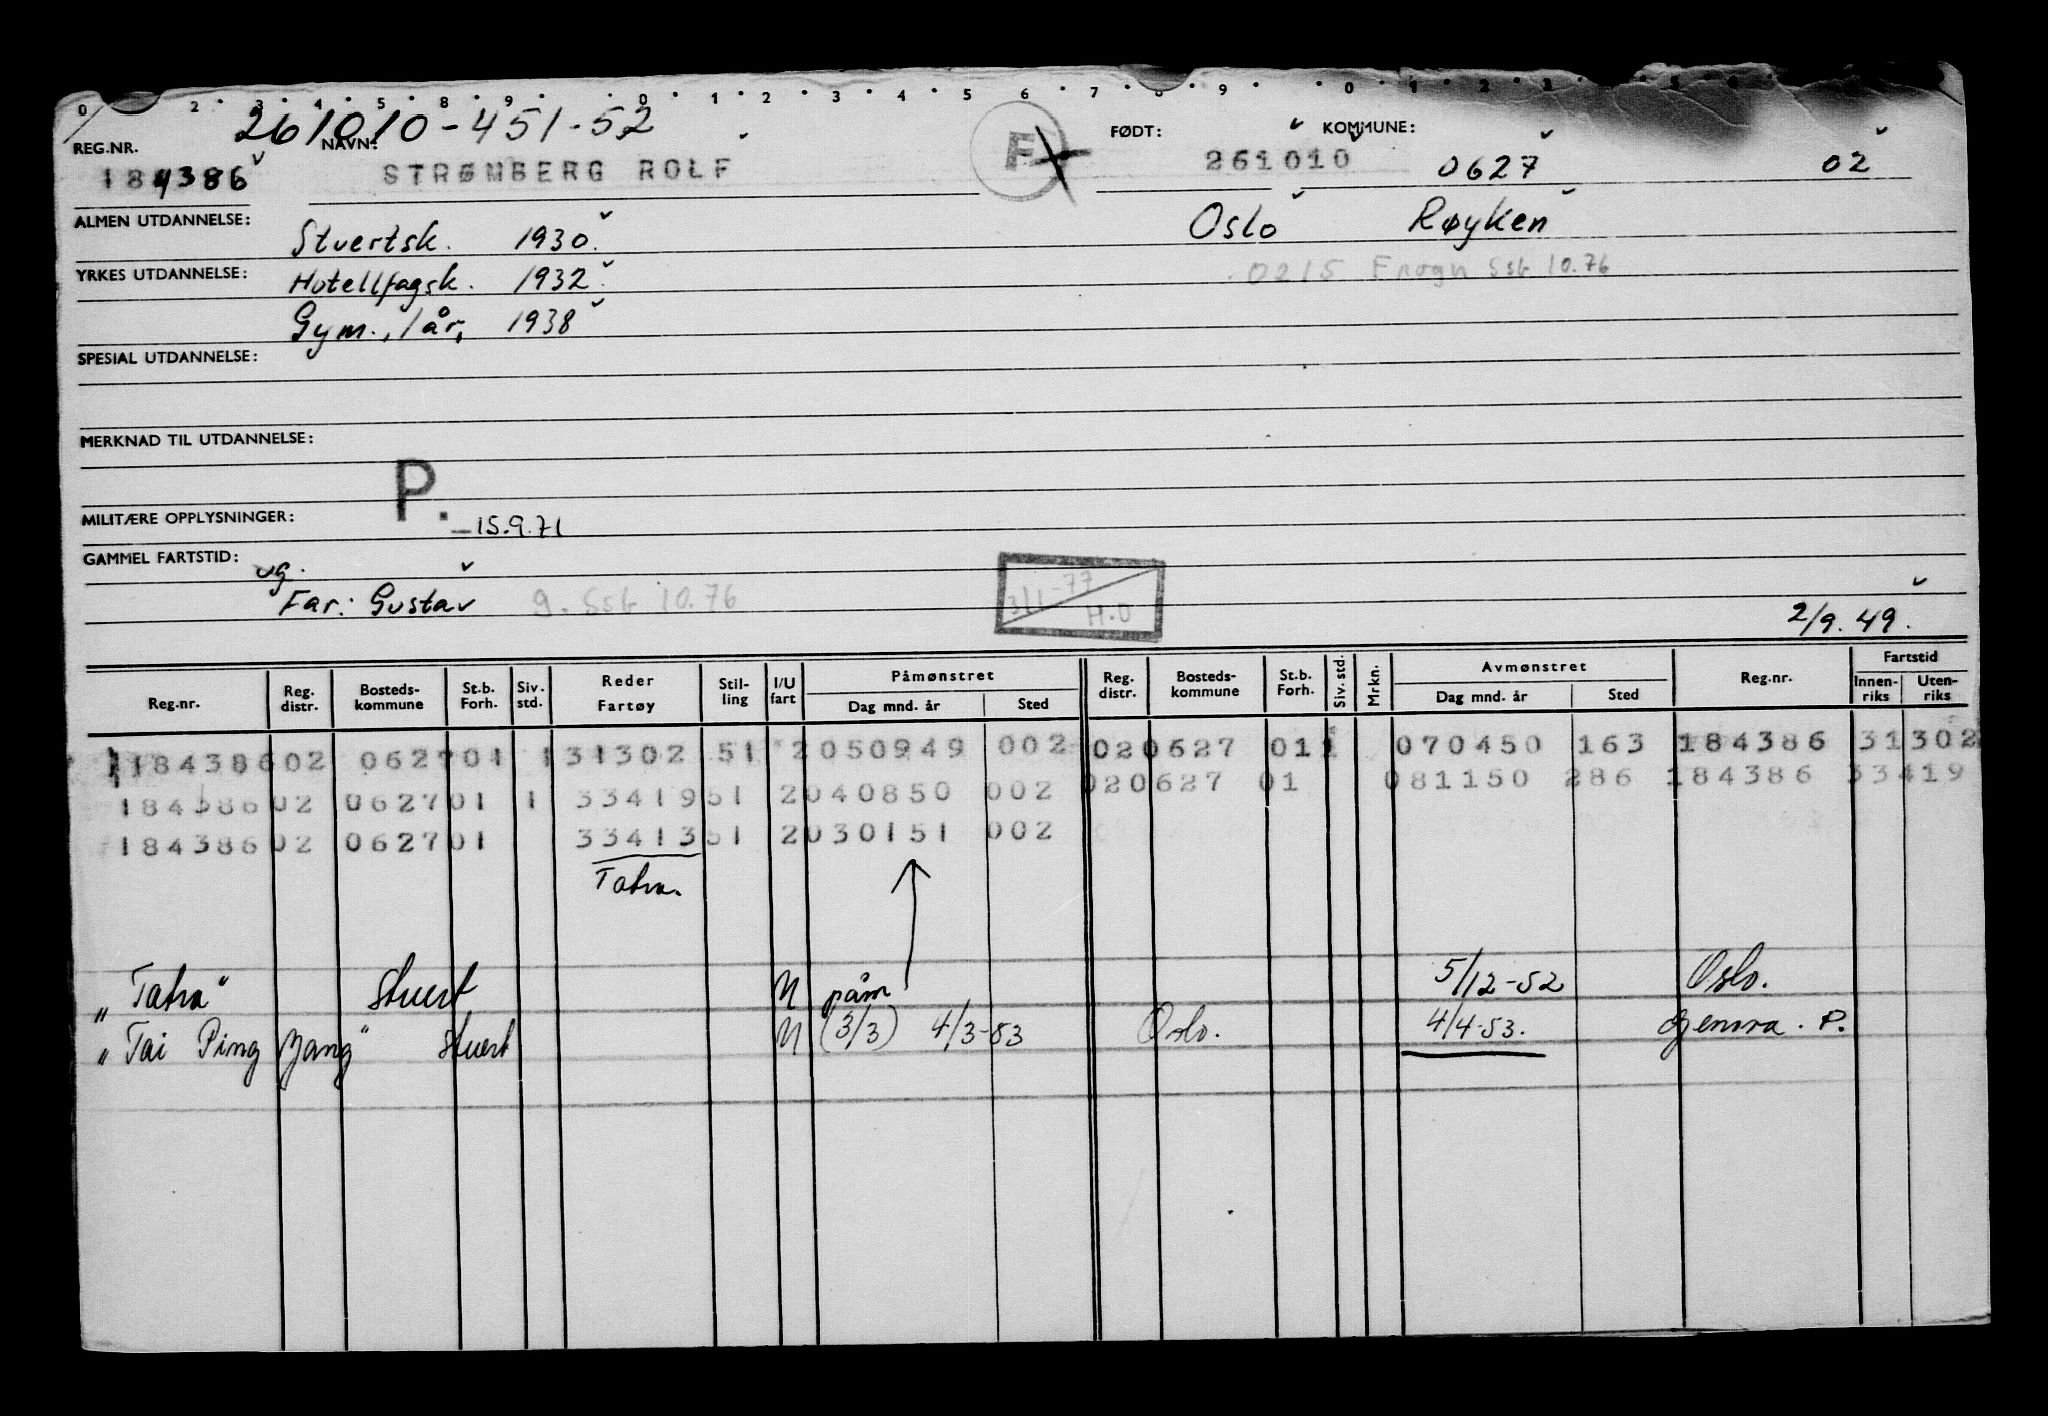 0 2 3 4 5 8 9 0 1 2 3 4 5 6 7 8 9 0 1 2 3
261010-451-52
REG.NR. NAVN: F FØDT: KOMMUNE:
184386 STRØMBERG ROLF 261010 0627 02
ALMEN UTDANNELSE: Stuertsk. 1930. Oslo Røyken
YRKES UTDANNELSE: Hotellfagsk. 1932. 0215 Frogn Ssb 10.76
Gym., 1 år, 1938
SPESIAL UTDANNELSE:
MERKNAD TIL UTDANNELSE:
P.
MILITÆRE OPPLYSNINGER: -15.9.71
GAMMEL FARTSTID:
ug. 3/1-77
Far: Gustav g. Ssb 10.76 H.O 2/9.49.
Reg.nr. Reg. distr. Bosteds-kommune St.b. Forh. Siv. std. Reder Fartøy Stil-ling I/U fart Påmønstret Dag mnd. år Sted Reg. distr. Bosteds-kommune St.b. Forh. Siv. std. Mrkn. Avmønstret Dag mnd. år Sted Reg.nr. Fartstid Innen-riks Uten-riks
184386 02 0627 01 1 31302 51 2 050949 002 02 0627 01 1 070450 163 184386 31302
184386 02 0627 01 1 33419 51 2 040850 002 02 0627 01 081150 286 184386 33419
184386 02 0627 01 33413 51 2 030151 002
Tatra.
"Tatra" Stuert U påm 5/12-52 Oslo.
"Tai Ping Yang" Stuert U (3/3) 4/3-53 Oslo. 4/4-53. Genova. P.